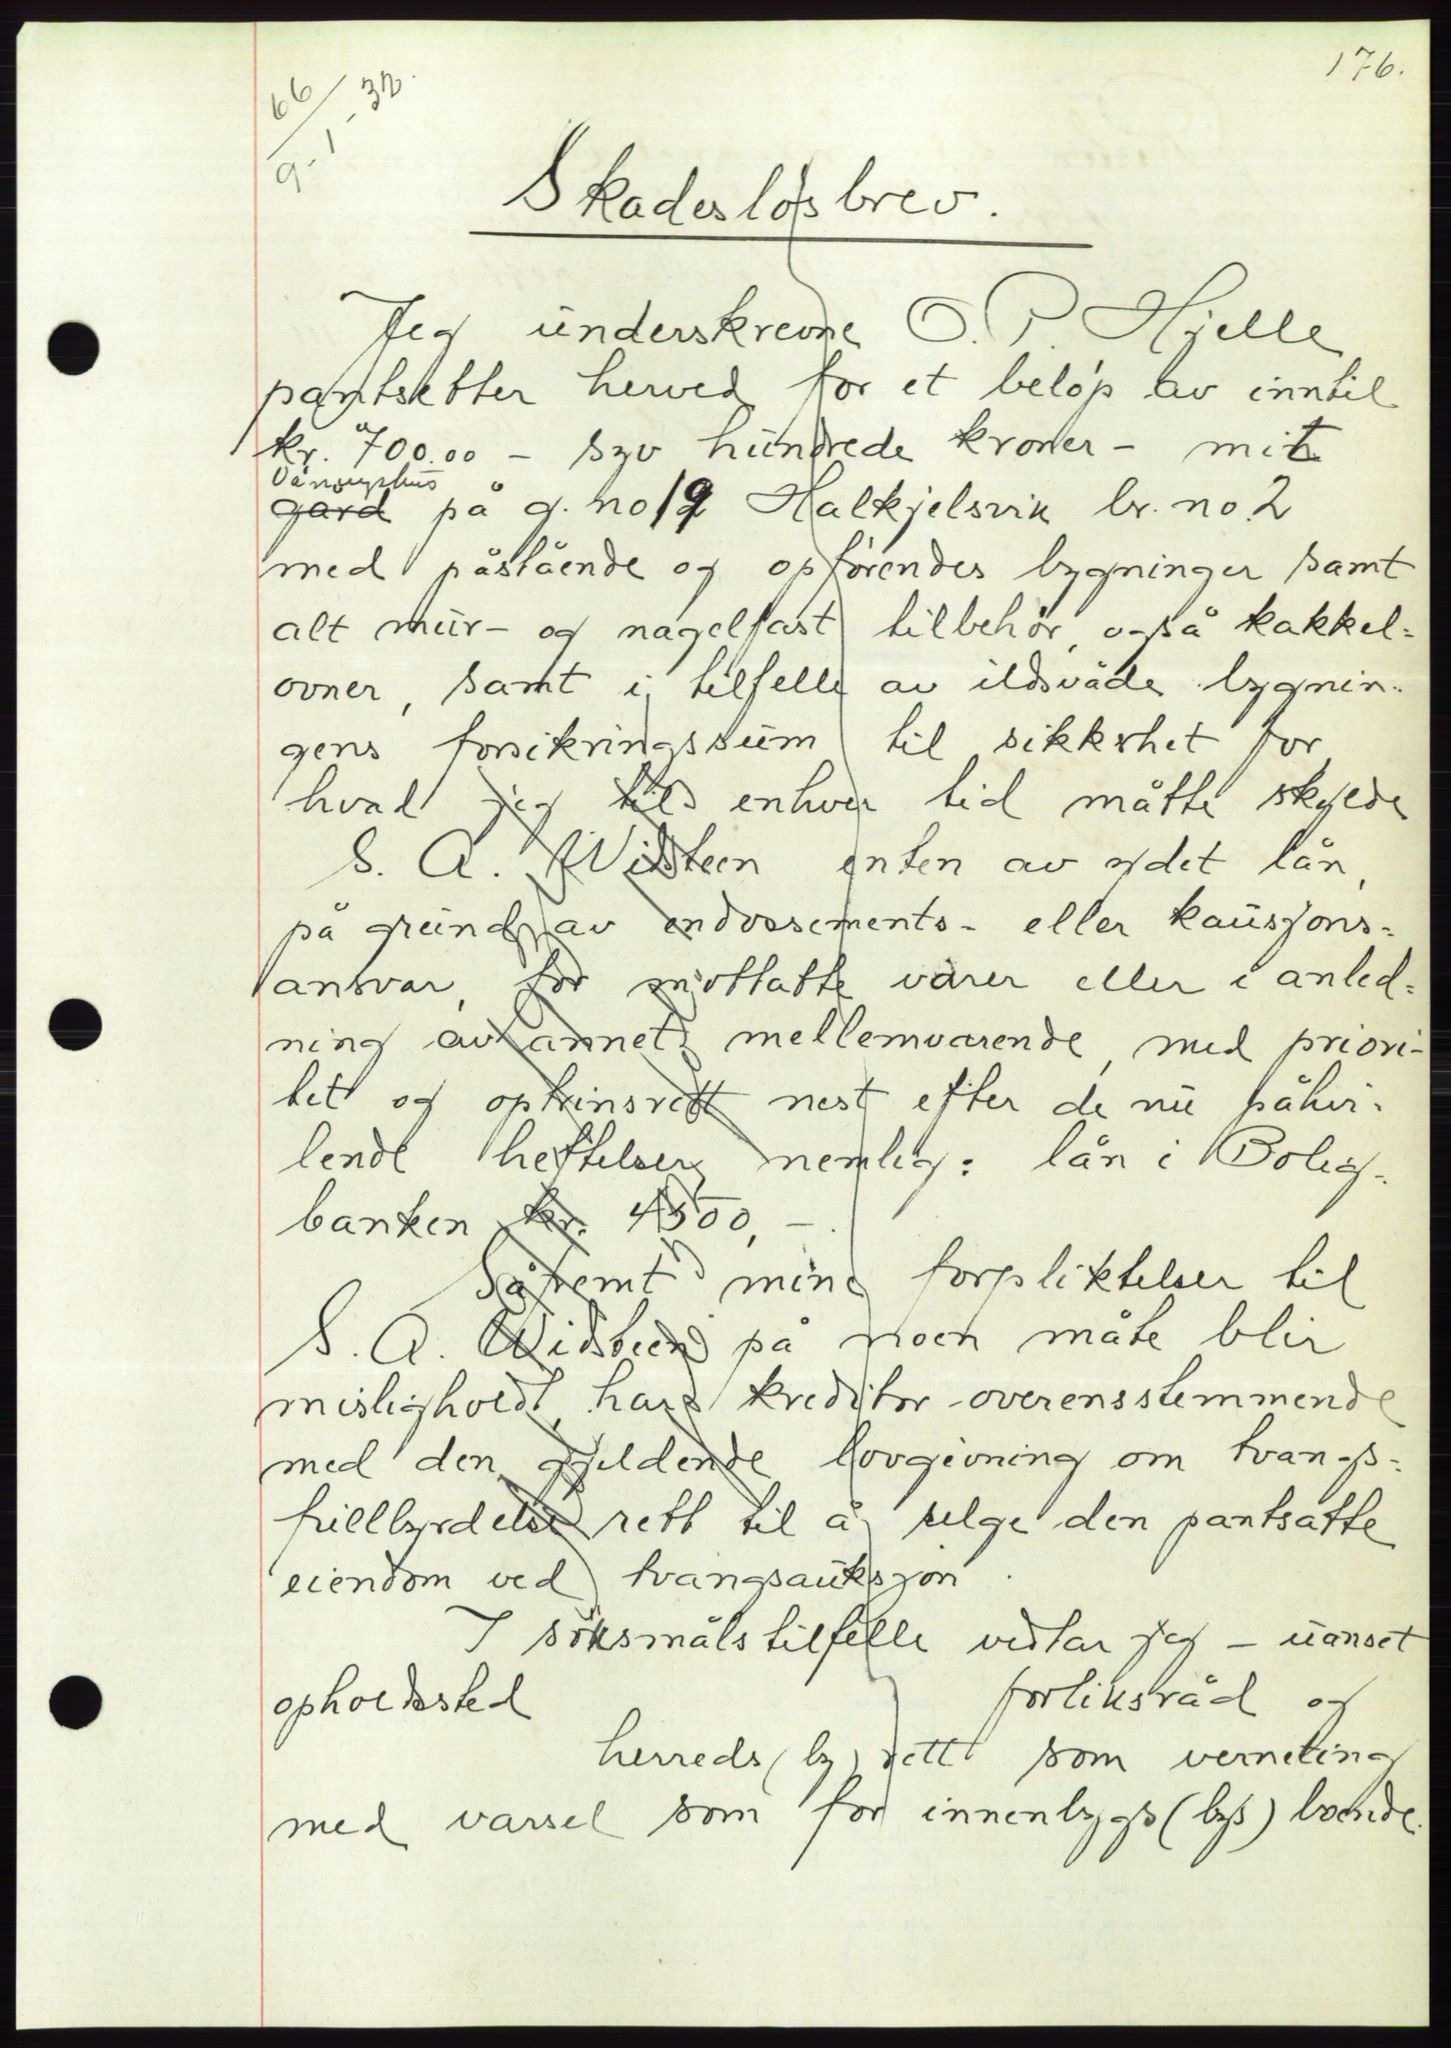 176.
66
9-1-32.
Skadesløsbrev.
Jeg underskrevne O. P. Hjelle
pantsetter herved for et beløp av inntil
kr. 700.00 - syv hundrede kroner - mit
gard på g. no 19 Halkjelsvik br. no. 2
med påstående og opførendes bygninger samt
alt mur- og nagelfast tilbehør, også kakkel=
ovner, samt i tilfelle av ildsvåde bygnin-
gens forsikringssum til sikkerhet for
hvad jeg til enhver tid måtte skylde
S. A. Widsteen enten av ydet lån,
på grund av endossements- eller kausjons=
ansvar, for mottatte varer eller i anled=
ning av annet mellemværende, med priori-
tet og optrinsrett nest efter de nu påhvi-
lende heftelser nemlig: lån i Bolig-
banken kr. 4500,-.
Såfremt mine forpliktelser til
S. A. Widsteen på noen måte blir
misligholdt, har kreditor overensstemmende
med den gjeldende lovgivning om tvangs=
fullbyrdelse rett til å selge den pantsatte
eiendom ved tvangsauksjon.
I søksmålstilfelle vedtar jeg - uanset
opholdssted forliksråd og
herreds (by) rett som verneting
med varsel som for innenbygs (bys) boende.